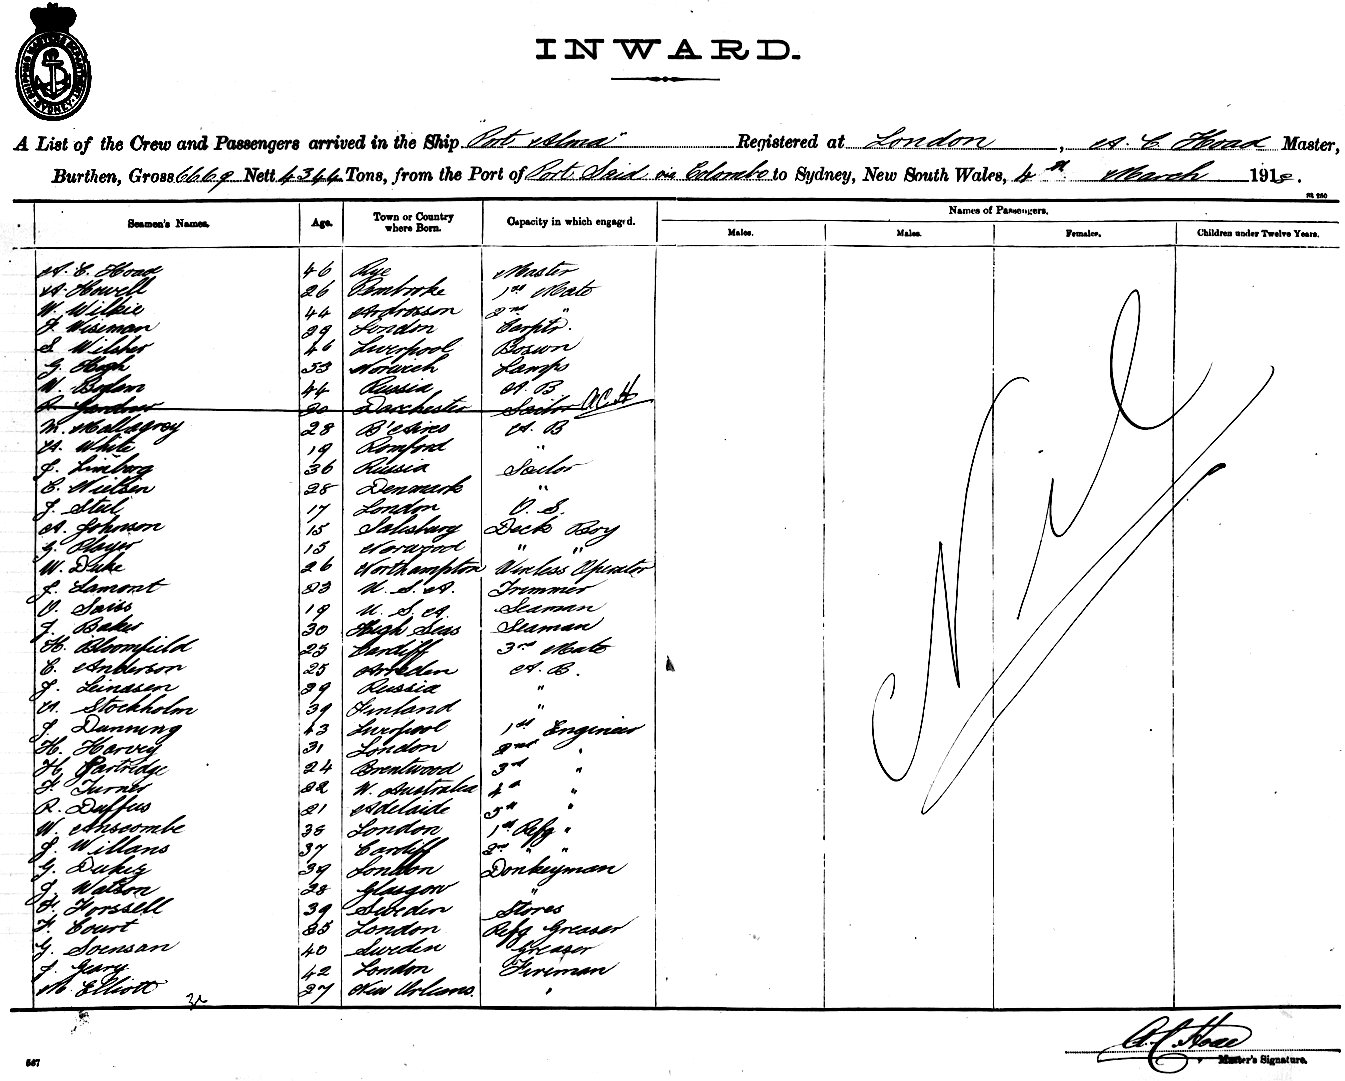 SHIPPING MASTER'S DEPARTMENT SYDNEY
INWARD.
A List of the Crew and Passengers arrived in the Ship Port Alma" Registered at London, A. C. Hoad Master,
Burthen, Gross 6669 Nett 4344 Tons, from the Port of Port Said via Colombo to Sydney, New South Wales, 4th March 191
Seamen's Names. Age. Town or Country where Born. Capacity in which engaged. Names of Passengers.
Males. Males. Females. Children under Twelve Years.
A. C. Hoad 46 Rye Master
A. Howell 26 Pembroke 1st Mate
W. Wilkie 44 Ardrossan 2nd "
F. Wiseman 29 London Carptr.
S. Wilsher 46 Liverpool Bosun
G. High 53 Norwich Lamps
W. Boden 44 Russia A. B
R. Gardner 20 Dorchester Sailor A.C.H
M. Mallagroy 28 B'Aires A. B
A. White 19 Romford "
J. Limberg 36 Russia Sailor
C. Nielsen 28 Denmark "
J. Steel 17 London O. S.
A. Johnson 15 Salisbury Deck Boy
G. Player 15 Norwood " "
W. Duke 26 Northampton Wireless Operator
J. Lamont 23 U. S. A. Trimmer
O. Saiss 19 U. S. A. Seaman
J. Baker 30 High Seas Seaman
H. Bloomfield 25 Cardiff 3rd Mate
C. Anderson 25 Sweden A. B.
J. Leinasen 29 Russia "
A. Stockholm 39 Finland "
J. Dunning 43 Liverpool 1st Engineer
H. Harvey 31 London 2nd "
H. Partridge 24 Brentwood 3rd "
F. Turner 22 W. Australia 4th "
R. Duffus 21 Adelaide 5th "
W. Anscombe 38 London 1st Refg "
J. Willans 37 Cardiff 2nd " "
G. Dukes 39 London Donkeyman
J. Watson 28 Glasgow "
F. Forssell 39 Sweden Stores
F. Court 25 London Refg Greaser
G. Svensan 40 Sweden Greaser
J. Geary 42 London Fireman
M. Elliott 27 New Orleans. "
Nil
A. C. Hoad
Master's Signature.
567